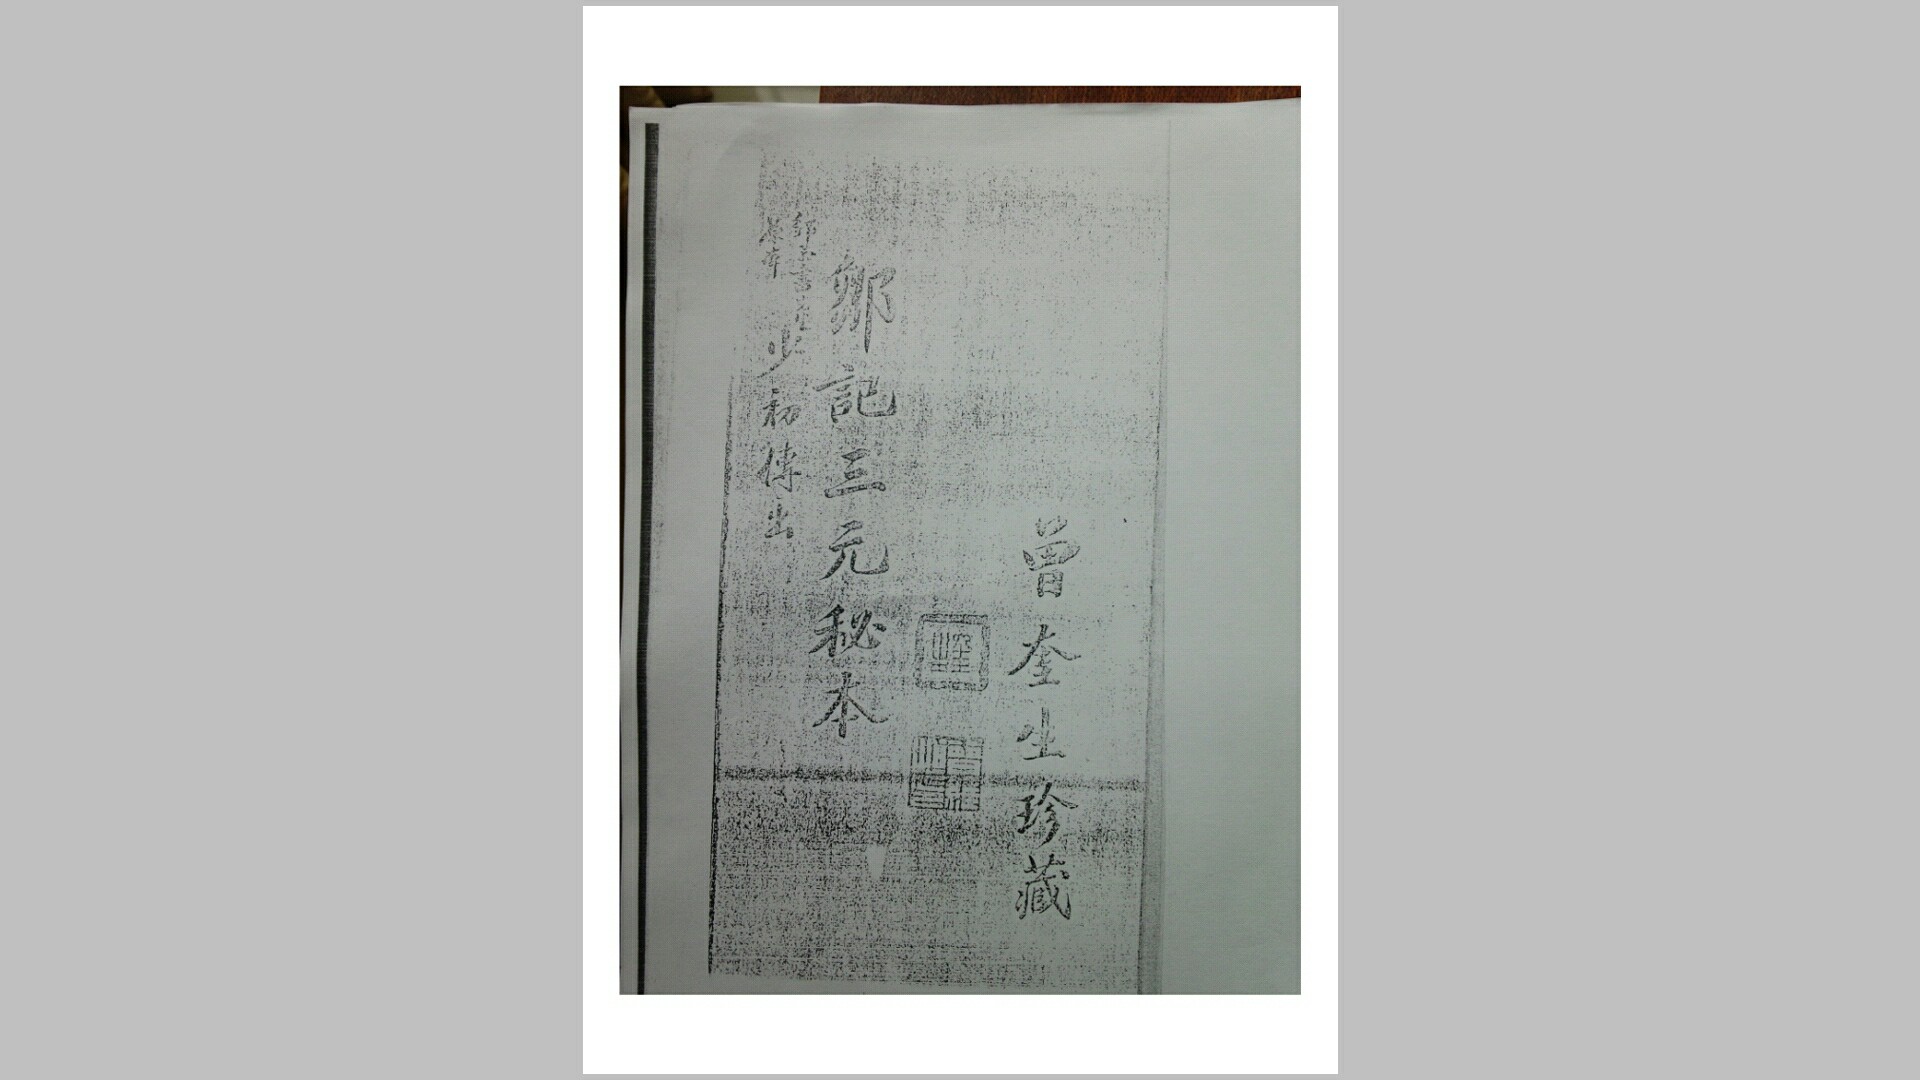 曾奎生珍藏
鄒記三元秘本
少初傳出